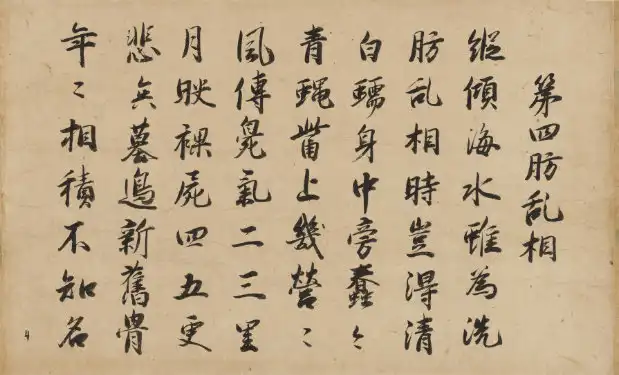 第四肪乱相
縱傾海水雖為洗
肪乱相時豈淂清
白蠕身中旁蠢〻
青蝿胔上幾營〻
風傳臰氣二三里
月映裸屍四五更
悲矣墓邊新舊骨
年〻相積不知名